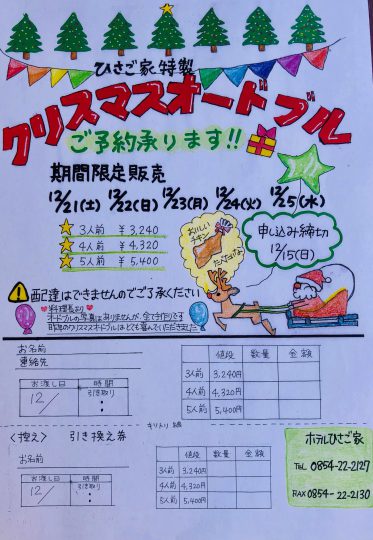 ひさご家特製
クリスマスオードブル
ご予約承ります!!
期間限定販売
12/21(土) 12/22(日) 12/23(月) 12/24(火) 12/25(水)
3人前 ¥3,240
4人前 ¥4,320
5人前 ¥5,400
おいしいチキン
たべたいな
申し込み締切
12/15(日)
配達はできませんのでご了承ください
料理長より
オードブルの写真はありませんが、全て手作りです
昨年のクリスマスオードブルはとても喜んでいただきました
お名前
連絡先
お渡し日 時間
引き取り
12/ :
値段 数量 金額
3人前 3,240円
4人前 4,320円
5人前 5,400円
キリトリ線
〈控え〉 引き換え券
お名前
お渡し日 時間
引き取り
12/ :
値段 数量 金額
3人前 3,240円
4人前 4,320円
5人前 5,400円
ホテルひさご家
TEL 0854-22-2127
FAX 0854-22-2130